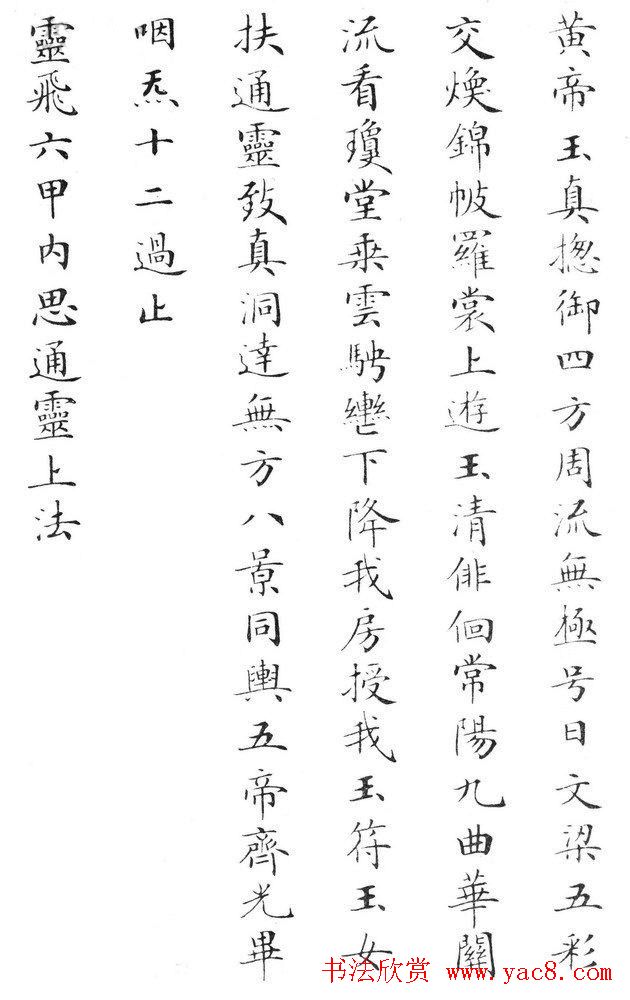 黄帝玉真揔御四方周流無極号曰文梁五彩
交焕錦帔羅裳上遊玉清俳佪常陽九曲華關
流看瓊堂乗雲駃轡下降我房授我玉符玉女
扶通靈致真洞達無方八景同輿五帝齊光畢
咽炁十二過止
靈飛六甲内思通靈上法
书法欣赏 www.yac8.com